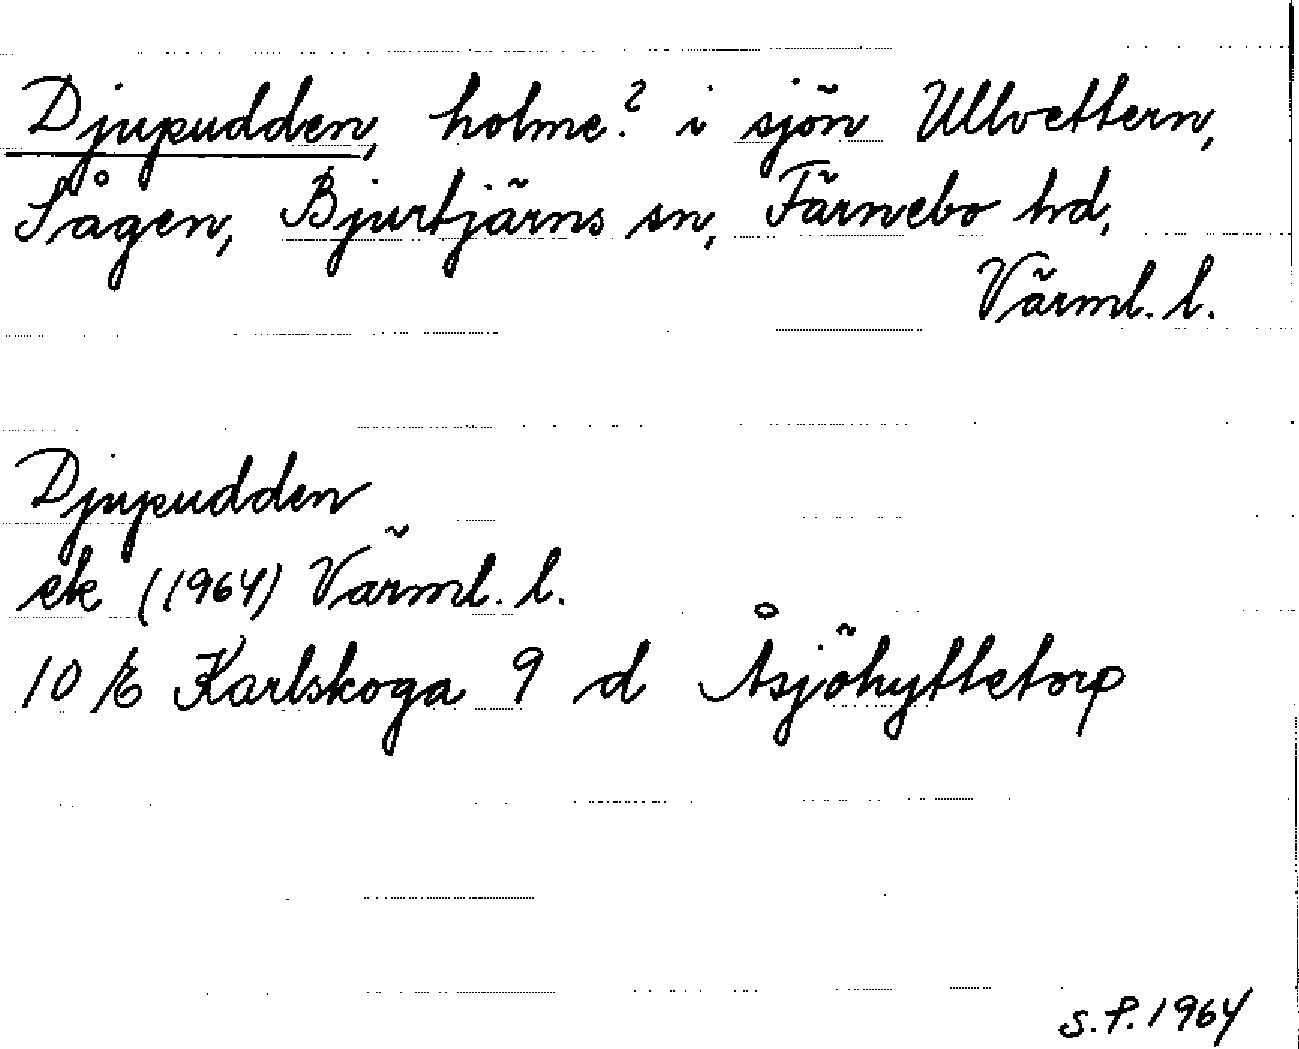 Djupudden, holme? i sjön Ullvettern,
Sågen, Bjurtjärns sn, Färnebo hd,
Värml. l.
Djupudden
ek (1964) Värml. l.
10 E Karlskoga 9 d Åsjöhyttetorp
S.P. 1964